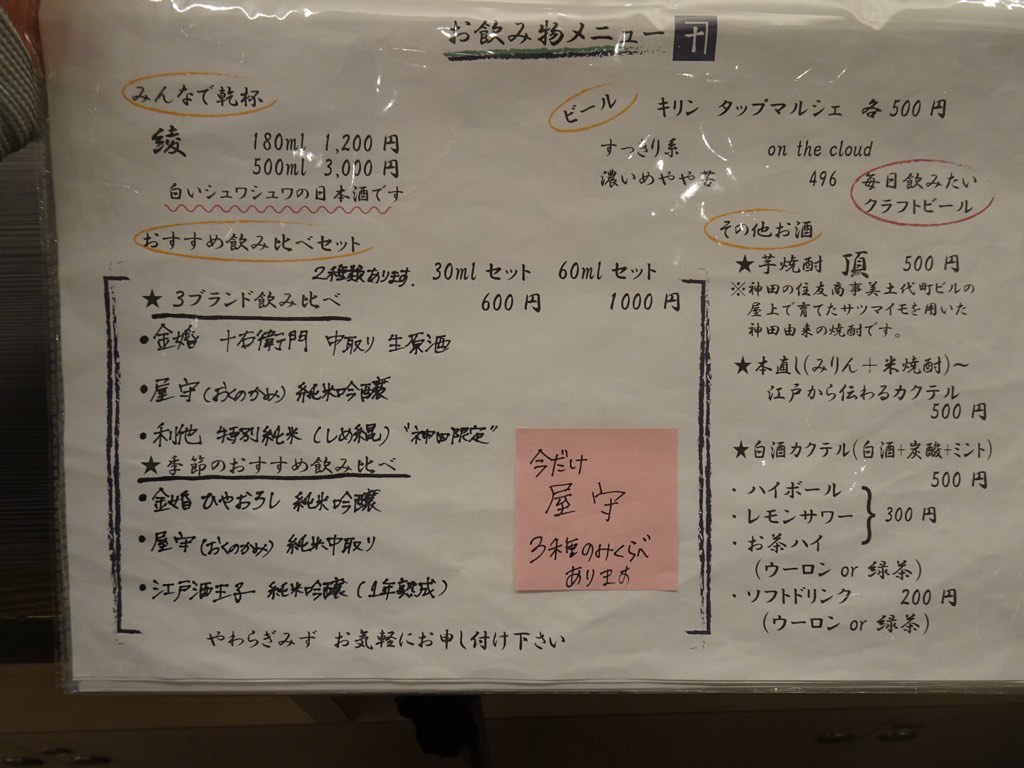 お飲み物メニュー
みんなで乾杯
綾 180ml 1,200 円
500ml 3,000 円
白いシュワシュワの日本酒です
おすすめ飲み比べセット
2種類あります. 30ml セット 60ml セット
★ 3ブランド飲み比べ 600 円 1000 円
・金婚 十右衛門 中取り 生原酒
・屋守(おくのかみ) 純米吟醸
・利他 特別純米 (しめ縄) "神田限定"
★ 季節のおすすめ飲み比べ
・金婚 ひやおろし 純米吟醸
・屋守(おくのかみ) 純米中取り
・江戸酒王子 純米吟醸 (1年熟成)
今だけ
屋守
3種のみくらべ
あります
やわらぎみず お気軽にお申し付け下さい
ビール キリン タップマルシェ 各 500 円
すっきり系 on the cloud
濃いめやや苦 496
毎日飲みたい
クラフトビール
その他お酒
★芋焼酎 頂 500 円
※神田の住友商事美土代町ビルの
屋上で育てたサツマイモを用いた
神田由来の焼酎です。
★本直し(みりん+米焼酎)～
江戸から伝わるカクテル
500 円
★白酒カクテル(白酒+炭酸+ミント)
500 円
・ハイボール
・レモンサワー } 300 円
・お茶ハイ
(ウーロン or 緑茶)
・ソフトドリンク 200 円
(ウーロン or 緑茶)